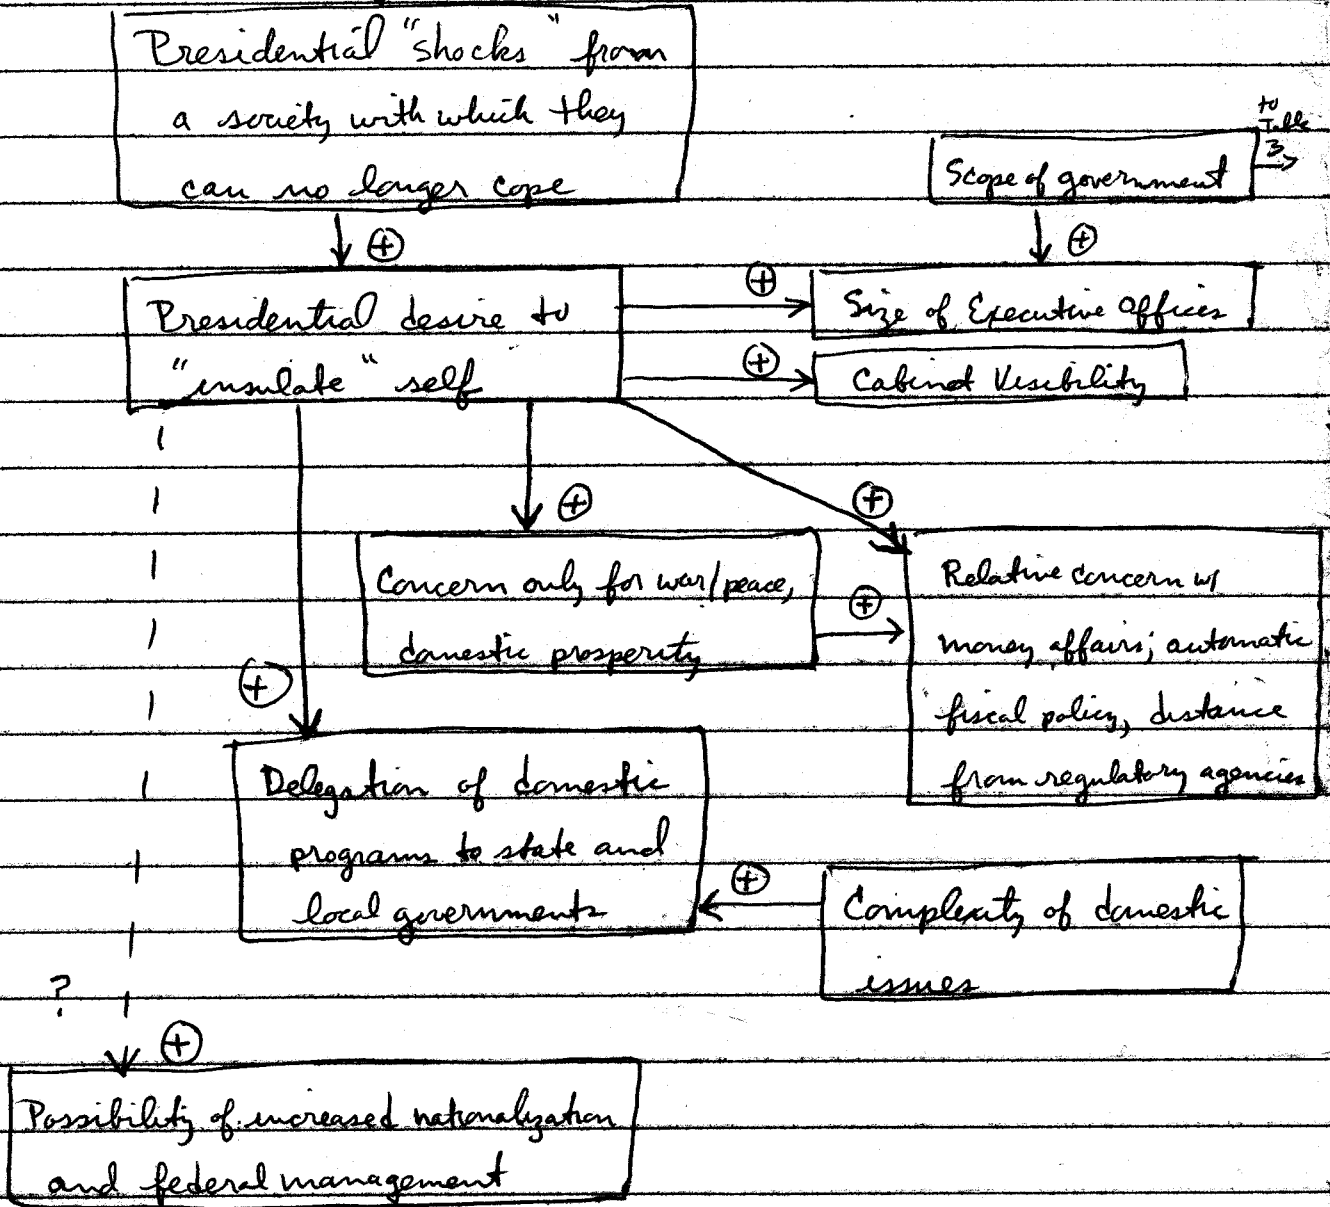 Presidential "shocks" from
a society with which they
can no longer cope
to
Table
3
Scope of government
+
+
Presidential desire to
"insulate" self
+
Size of Executive Offices
+
Cabinet Visibility
+
+
Concern only for war/peace,
domestic prosperity
+
Relative concern w/
money affairs; automatic
fiscal policy, distance
from regulatory agencies
+
Delegation of domestic
programs to state and
local governments
+
Complexity of domestic
issues
?
+
Possibility of increased nationalization
and federal management